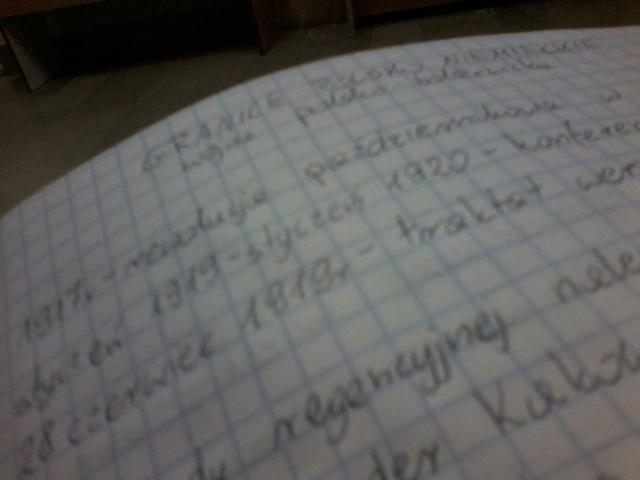 GRANICE POLSKO NIEMIECKIE
wojna polsko bolszewicka
1917r-rewolucja październikowa w
styczeń 1919-styczeń 1920-konferen
28 czerwiec 1919r- traktat wer
regencyjnej nale
der Kakow